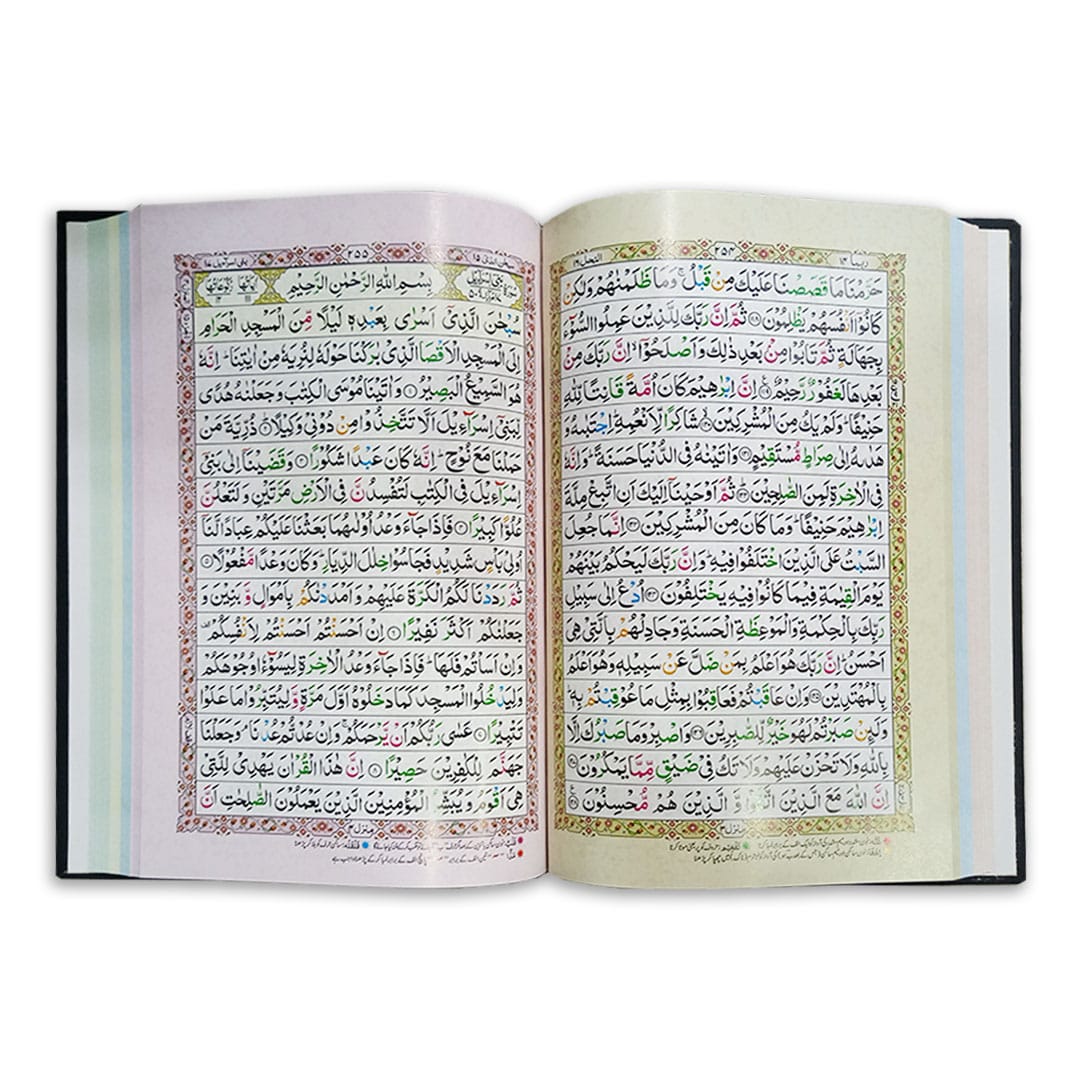 ربما ١٤
٢٥٤
النحل ١٦
حَرَّمْنَا مَا قَصَصْنَا عَلَيْكَ مِنْ قَبْلُ ۚ وَمَا ظَلَمْنٰهُمْ وَلٰكِنْ
كَانُوْۤا اَنْفُسَهُمْ يَظْلِمُوْنَ ﴿۱۱۸﴾ ثُمَّ اِنَّ رَبَّكَ لِلَّذِيْنَ عَمِلُوا السُّوْٓءَ
بِجَهَالَةٍ ثُمَّ تَابُوْا مِنْۢ بَعْدِ ذٰلِكَ وَاَصْلَحُوْۤا ۙ اِنَّ رَبَّكَ مِنْۢ
بَعْدِهَا لَغَفُوْرٌ رَّحِيْمٌ ﴿۱۱۹﴾ اِنَّ اِبْرٰهِيْمَ كَانَ اُمَّةً قَانِتًا لِّلّٰهِ
حَنِيْفًا ؕ وَلَمْ يَكُ مِنَ الْمُشْرِكِيْنَ ﴿۱۲۰﴾ شَاكِرًا لِّاَنْعُمِهٖ ؕ اِجْتَبٰىهُ وَ
هَدٰىهُ اِلٰى صِرَاطٍ مُّسْتَقِيْمٍ ﴿۱۲۱﴾ وَاٰتَيْنٰهُ فِى الدُّنْيَا حَسَنَةً ؕ وَاِنَّهٗ
فِى الْاٰخِرَةِ لَمِنَ الصّٰلِحِيْنَ ﴿۱۲۲﴾ ثُمَّ اَوْحَيْنَاۤ اِلَيْكَ اَنِ اتَّبِعْ مِلَّةَ
اِبْرٰهِيْمَ حَنِيْفًا ؕ وَمَا كَانَ مِنَ الْمُشْرِكِيْنَ ﴿۱۲۳﴾ اِنَّمَا جُعِلَ
السَّبْتُ عَلَى الَّذِيْنَ اخْتَلَفُوْا فِيْهِ ؕ وَاِنَّ رَبَّكَ لَيَحْكُمُ بَيْنَهُمْ
يَوْمَ الْقِيٰمَةِ فِيْمَا كَانُوْا فِيْهِ يَخْتَلِفُوْنَ ﴿۱۲۴﴾ اُدْعُ اِلٰى سَبِيْلِ
رَبِّكَ بِالْحِكْمَةِ وَالْمَوْعِظَةِ الْحَسَنَةِ وَجَادِلْهُمْ بِالَّتِىْ هِىَ
اَحْسَنُ ؕ اِنَّ رَبَّكَ هُوَ اَعْلَمُ بِمَنْ ضَلَّ عَنْ سَبِيْلِهٖ وَهُوَ اَعْلَمُ
بِالْمُهْتَدِيْنَ ﴿۱۲۵﴾ وَاِنْ عَاقَبْتُمْ فَعَاقِبُوْا بِمِثْلِ مَا عُوْقِبْتُمْ بِهٖ ؕ
وَلَئِنْ صَبَرْتُمْ لَهُوَ خَيْرٌ لِّلصّٰبِرِيْنَ ﴿۱۲۶﴾ وَاصْبِرْ وَمَا صَبْرُكَ اِلَّا
بِاللّٰهِ وَلَا تَحْزَنْ عَلَيْهِمْ وَلَا تَكُ فِىْ ضَيْقٍ مِّمَّا يَمْكُرُوْنَ ﴿۱۲۷﴾
اِنَّ اللّٰهَ مَعَ الَّذِيْنَ اتَّقَوْا وَّ الَّذِيْنَ هُمْ مُّحْسِنُوْنَ ﴿۱۲۸﴾
منزل ٣
سبحن الذى ١٥
٢٥٥
بنى اسراءيل ١٧
بِسْمِ اللّٰهِ الرَّحْمٰنِ الرَّحِيْمِ
سُبْحٰنَ الَّذِىْۤ اَسْرٰى بِعَبْدِهٖ لَيْلًا مِّنَ الْمَسْجِدِ الْحَرَامِ
اِلَى الْمَسْجِدِ الْاَقْصَا الَّذِىْ بٰرَكْنَا حَوْلَهٗ لِنُرِيَهٗ مِنْ اٰيٰتِنَا ؕ اِنَّهٗ
هُوَ السَّمِيْعُ الْبَصِيْرُ ﴿۱﴾ وَاٰتَيْنَا مُوْسَى الْكِتٰبَ وَجَعَلْنٰهُ هُدًى
لِّبَنِىْۤ اِسْرَآءِيْلَ اَلَّا تَتَّخِذُوْا مِنْ دُوْنِىْ وَكِيْلًا ﴿۲﴾ ذُرِّيَّةَ مَنْ
حَمَلْنَا مَعَ نُوْحٍ ؕ اِنَّهٗ كَانَ عَبْدًا شَكُوْرًا ﴿۳﴾ وَقَضَيْنَاۤ اِلٰى بَنِىْۤ
اِسْرَآءِيْلَ فِى الْكِتٰبِ لَتُفْسِدُنَّ فِى الْاَرْضِ مَرَّتَيْنِ وَلَتَعْلُنَّ
عُلُوًّا كَبِيْرًا ﴿۴﴾ فَاِذَا جَآءَ وَعْدُ اُوْلٰىهُمَا بَعَثْنَا عَلَيْكُمْ عِبَادًا لَّنَاۤ
اُولِىْ بَاْسٍ شَدِيْدٍ فَجَاسُوْا خِلٰلَ الدِّيَارِ ؕ وَكَانَ وَعْدًا مَّفْعُوْلًا ﴿۵﴾
ثُمَّ رَدَدْنَا لَكُمُ الْكَرَّةَ عَلَيْهِمْ وَاَمْدَدْنٰكُمْ بِاَمْوَالٍ وَّ بَنِيْنَ وَ
جَعَلْنٰكُمْ اَكْثَرَ نَفِيْرًا ﴿۶﴾ اِنْ اَحْسَنْتُمْ اَحْسَنْتُمْ لِاَنْفُسِكُمْ
وَاِنْ اَسَاْتُمْ فَلَهَا ؕ فَاِذَا جَآءَ وَعْدُ الْاٰخِرَةِ لِيَسُوْٓءٗا وُجُوْهَكُمْ
وَلِيَدْخُلُوا الْمَسْجِدَ كَمَا دَخَلُوْهُ اَوَّلَ مَرَّةٍ وَّلِيُتَبِّرُوْا مَا عَلَوْا
تَتْبِيْرًا ﴿۷﴾ عَسٰى رَبُّكُمْ اَنْ يَّرْحَمَكُمْ ۚ وَاِنْ عُدْتُّمْ عُدْنَا ۘ وَجَعَلْنَا
جَهَنَّمَ لِلْكٰفِرِيْنَ حَصِيْرًا ﴿۸﴾ اِنَّ هٰذَا الْقُرْاٰنَ يَهْدِىْ لِلَّتِىْ
هِىَ اَقْوَمُ وَيُبَشِّرُ الْمُؤْمِنِيْنَ الَّذِيْنَ يَعْمَلُوْنَ الصّٰلِحٰتِ اَنَّ
منزل ٤